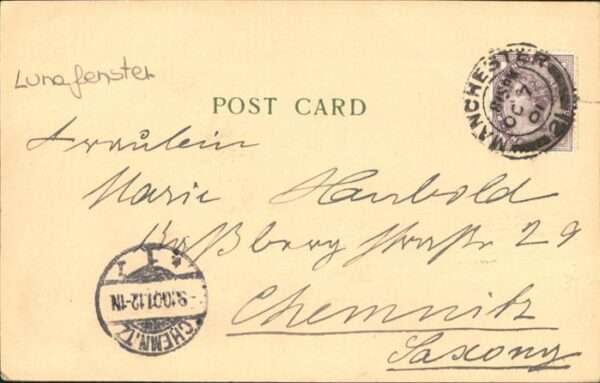 Lunafenster
POST CARD
MANCHESTER
12
Fräulein
Marie Haubold
Straße 29
Chemnitz
Saxony
CHEMN.
-9.10.01.12-1N